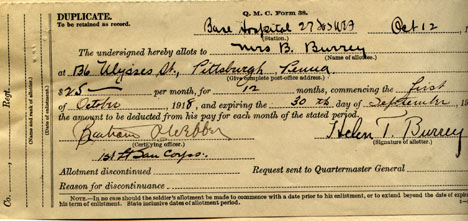 DUPLICATE.
Q. M. C. Form 38.
To be retained as record.
Base Hospital 27 Oct 12
(Station.)
The undersigned hereby allots to Mrs B. Burrey
(Name of allottee.)
at 136 Ulysses St., Pittsburgh, Penna
(Give complete post-office address.)
$25 per month, for 12 months, commencing the first
of October 1918, and expiring the 30 th. day of September
the amount to be deducted from his pay for each month of the stated period.
Helen T. Burrey
(Certifying officer.) (Signature of allotter.)
1st Lt San Corps.
Allotment discontinued Request sent to Quartermaster General
Reason for discontinuance
NOTE.—In no case should the soldier's allotment be made to commence with a date prior to its, or to extend beyond the date of
his term of enlistment. State inclusive dates of allotment period.
Co. , Regt.
(Name and rank of allotter.)